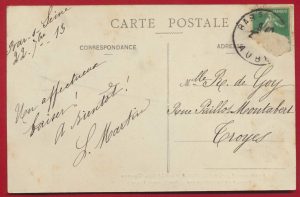 CARTE POSTALE
CORRESPONDANCE
ADRESSE
Bar s/ Seine
22 13
Un affectueux
baiser!
A bientôt!
L. Martin
Mlle R. de Goy
Rue Paillot Montabert
Troyes